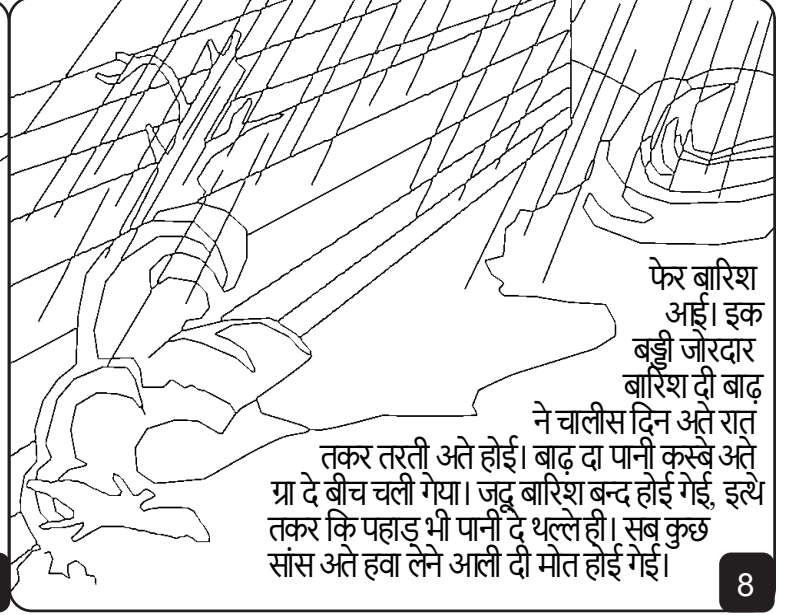 फेर बारिश
आई। इक
बड्डी जोरदार
बारिश दी बाढ़
ने चालीस दिन अते रात
तकर तरती अते होई। बाढ़ दा पानी कस्बे अते
ग्रा दे बीच चली गेया। जदू बारिश बन्द होई गेई, इत्थे
तकर कि पहाड़ भी पानी दे थल्ले ही। सब कुछ
सांस अते हवा लेने आली दी मोत होई गेई।
8